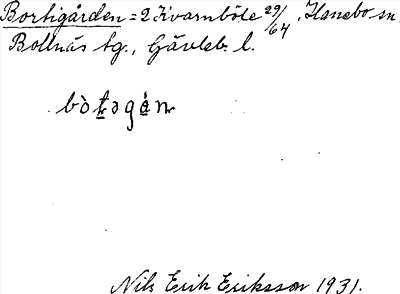 Bortigården = 2 Kvarnböle 29/64, Hanebo sn.
Bollnäs tg., Gävleb. l.
bòt̠əgá̠n
Nils Erik Eriksson 1931.